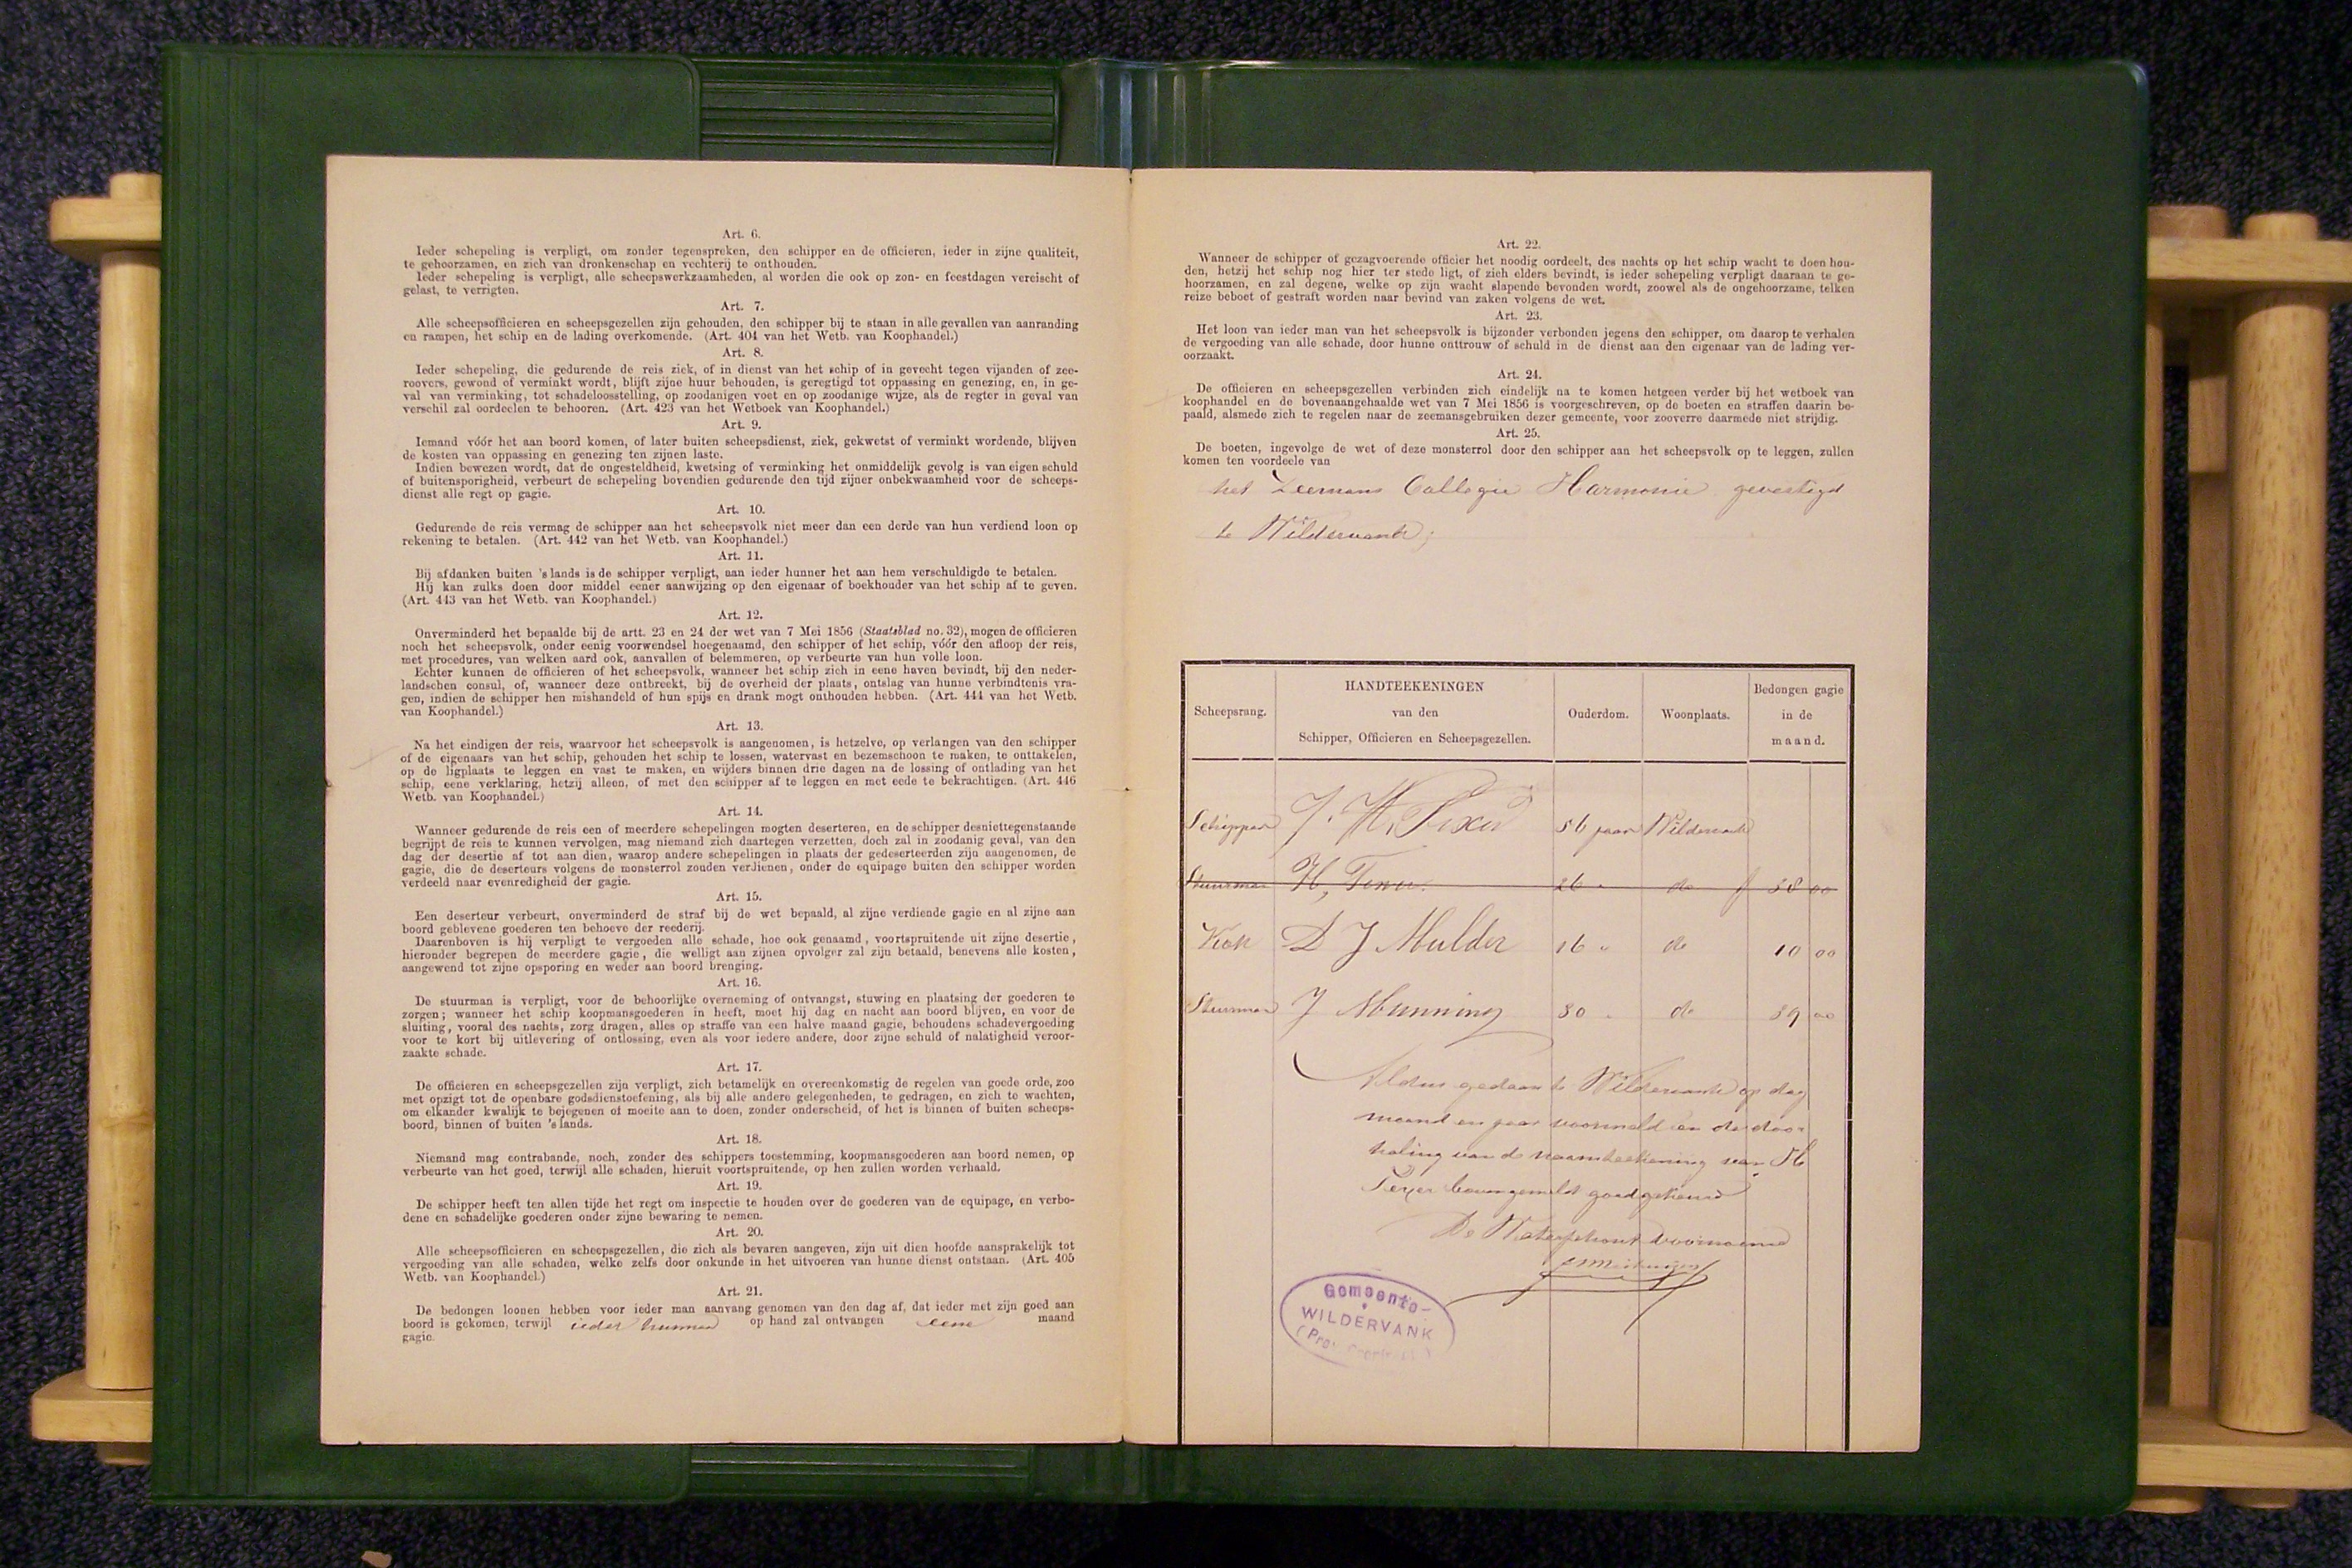 Art. 6.
Ieder schepeling is verpligt, om zonder tegenspreken, den schipper en de officieren, ieder in zijne qualiteit,
te gehoorzamen, en zich van dronkenschap en vechterij te onthouden.
Ieder schepeling is verpligt, alle scheepswerkzaamheden, al worden die ook op zon- en feestdagen vereischt of
gelast, te verrigten.
Art. 7.
Alle scheepsofficieren en scheepsgezellen zijn gehouden, den schipper bij te staan in alle gevallen van aanranding
en rampen, het schip en de lading overkomende. (Art. 404 van het Wetb. van Koophandel.)
Art. 8.
Ieder schepeling, die gedurende de reis ziek, of in dienst van het schip of in gevecht tegen vijanden of zee-
roovers, gewond of verminkt wordt, blijft zijne huur behouden, is geregtigd tot oppassing en genezing, en, in ge-
val van verminking, tot schadeloosstelling, op zoodanigen voet en op zoodanige wijze, als de regter in geval van
verschil zal oordeelen te behooren. (Art. 423 van het Wetboek van Koophandel.)
Art. 9.
Iemand vóór het aan boord komen, of later buiten scheepsdienst, ziek, gekwetst of verminkt wordende, blijven
de kosten van oppassing en genezing ten zijnen laste.
Indien bewezen wordt, dat de ongesteldheid, kwetsing of verminking het onmiddelijk gevolg is van eigen schuld
of buitensporigheid, verbeurt de schepeling bovendien gedurende den tijd zijner onbekwaamheid voor de scheeps-
dienst alle regt op gagie.
Art. 10.
Gedurende de reis vermag de schipper aan het scheepsvolk niet meer dan een derde van hun verdiend loon op
rekening te betalen. (Art. 442 van het Wetb. van Koophandel.)
Art. 11.
Bij afdanken buiten 's lands is de schipper verpligt, aan ieder hunner het aan hem verschuldigde te betalen.
Hij kan zulks doen door middel eener aanwijzing op den eigenaar of boekhouder van het schip af te geven.
(Art. 443 van het Wetb. van Koophandel.)
Art. 12.
Onverminderd het bepaalde bij de artt. 23 en 24 der wet van 7 Mei 1856 (Staatsblad no. 32), mogen de officieren
noch het scheepsvolk, onder eenig voorwendsel hoegenaamd, den schipper of het schip, vóór den afloop der reis,
met procedures, van welken aard ook, aanvallen of belemmeren, op verbeurte van hun volle loon.
Echter kunnen de officieren of het scheepsvolk, wanneer het schip zich in eene haven bevindt, bij den neder-
landschen consul, of, wanneer deze ontbreekt, bij de overheid der plaats, ontslag van hunne verbindtenis vra-
gen, indien de schipper hen mishandeld of hun spijs en drank mogt onthouden hebben. (Art. 444 van het Wetb.
van Koophandel.)
Art. 13.
Na het eindigen der reis, waarvoor het scheepsvolk is aangenomen, is hetzelve, op verlangen van den schipper
of de eigenaars van het schip, gehouden het schip te lossen, watervast en bezemschoon te maken, te onttakelen,
op de ligplaats te leggen en vast te maken, en wijders binnen drie dagen na de lossing of ontlading van het
schip, eene verklaring, hetzij alleen, of met den schipper af te leggen en met eede te bekrachtigen. (Art. 446
Wetb. van Koophandel.)
Art. 14.
Wanneer gedurende de reis een of meerdere schepelingen mogten deserteren, en de schipper desniettegenstaande
begrijpt de reis te kunnen vervolgen, mag niemand zich daartegen verzetten, doch zal in zoodanig geval, van den
dag der desertie af tot aan dien, waarop andere schepelingen in plaats der gedeserteerden zijn aangenomen, de
gagie, die de deserteurs volgens de monsterrol zouden verdienen, onder de equipage buiten den schipper worden
verdeeld naar evenredigheid der gagie.
Art. 15.
Een deserteur verbeurt, onverminderd de straf bij de wet bepaald, al zijne verdiende gagie en al zijne aan
boord geblevene goederen ten behoeve der reederij.
Daarenboven is hij verpligt te vergoeden alle schade, hoe ook genaamd, voortspruitende uit zijne desertie,
hieronder begrepen de meerdere gagie, die welligt aan zijnen opvolger zal zijn betaald, benevens alle kosten,
aangewend tot zijne opsporing en weder aan boord brenging.
Art. 16.
De stuurman is verpligt, voor de behoorlijke overneming of ontvangst, stuwing en plaatsing der goederen te
zorgen; wanneer het schip koopmansgoederen in heeft, moet hij dag en nacht aan boord blijven, en voor de
sluiting, vooral des nachts, zorg dragen, alles op straffe van een halve maand gagie, behoudens schadevergoeding
voor te kort bij uitlevering of ontlossing, even als voor iedere andere, door zijne schuld of nalatigheid veroor-
zaakte schade.
Art. 17.
De officieren en scheepsgezellen zijn verpligt, zich betamelijk en overeenkomstig de regelen van goede orde, zoo
met opzigt tot de openbare godsdienstoefening, als bij alle andere gelegenheden, te gedragen, en zich te wachten,
om elkander kwalijk te bejegenen of moeite aan te doen, zonder onderscheid, of het is binnen of buiten scheeps-
boord, binnen of buiten 's lands.
Art. 18.
Niemand mag contrabande, noch, zonder des schippers toestemming, koopmansgoederen aan boord nemen, op
verbeurte van het goed, terwijl alle schaden, hieruit voortspruitende, op hen zullen worden verhaald.
Art. 19.
De schipper heeft ten allen tijde het regt om inspectie te houden over de goederen van de equipage, en verbo-
dene en schadelijke goederen onder zijne bewaring te nemen.
Art. 20.
Alle scheepsofficieren en scheepsgezellen, die zich als bevaren aangeven, zijn uit dien hoofde aansprakelijk tot
vergoeding van alle schaden, welke zelfs door onkunde in het uitvoeren van hunne dienst ontstaan. (Art. 405
Wetb. van Koophandel.)
Art. 21.
De bedongen loonen hebben voor ieder man aanvang genomen van den dag af, dat ieder met zijn goed aan
boord is gekomen, terwijl ieder hunner op hand zal ontvangen eene maand
gagie.
Art. 22.
Wanneer de schipper of gezagvoerende officier het noodig oordeelt, des nachts op het schip wacht te doen hou-
den, hetzij het schip nog hier ter stede ligt, of zich elders bevindt, is ieder schepeling verpligt daaraan te ge-
hoorzamen, en zal degene, welke op zijn wacht slapende bevonden wordt, zoowel als de ongehoorzame, telken
reize beboet of gestraft worden naar bevind van zaken volgens de wet.
Art. 23.
Het loon van ieder man van het scheepsvolk is bijzonder verbonden jegens den schipper, om daarop te verhalen
de vergoeding van alle schade, door hunne onttrouw of schuld in de dienst aan den eigenaar van de lading ver-
oorzaakt.
Art. 24.
De officieren en scheepsgezellen verbinden zich eindelijk na te komen hetgeen verder bij het wetboek van
koophandel en de bovenaangehaalde wet van 7 Mei 1856 is voorgeschreven, op de boeten en straffen daarin be-
paald, alsmede zich te regelen naar de zeemansgebruiken dezer gemeente, voor zooverre daarmede niet strijdig.
Art. 25.
De boeten, ingevolge de wet of deze monsterrol door den schipper aan het scheepsvolk op te leggen, zullen
komen ten voordeele van
het Zeemans Collegie Harmonie gevestigd
te Wildervank;
Scheepsrang. HANDTEEKENINGEN van den Schipper, Officieren en Scheepsgezellen. Ouderdom. Woonplaats. Bedongen gagie in de maand.
Schipper J. H. 56 jaar Wildervank
Stuurman H, 26 " do f 38 00
Kok D J Mulder 16 " do 10 00
Stuurman J Munning 30 " do 39 00
Aldus gedaan te Wildervank op dag
maand en jaar voormeld en de door-
haling van de naamteekening van H
bovengemeld goedgekeurd
De Waterschout voornoemd
Gemeente
WILDERVANK